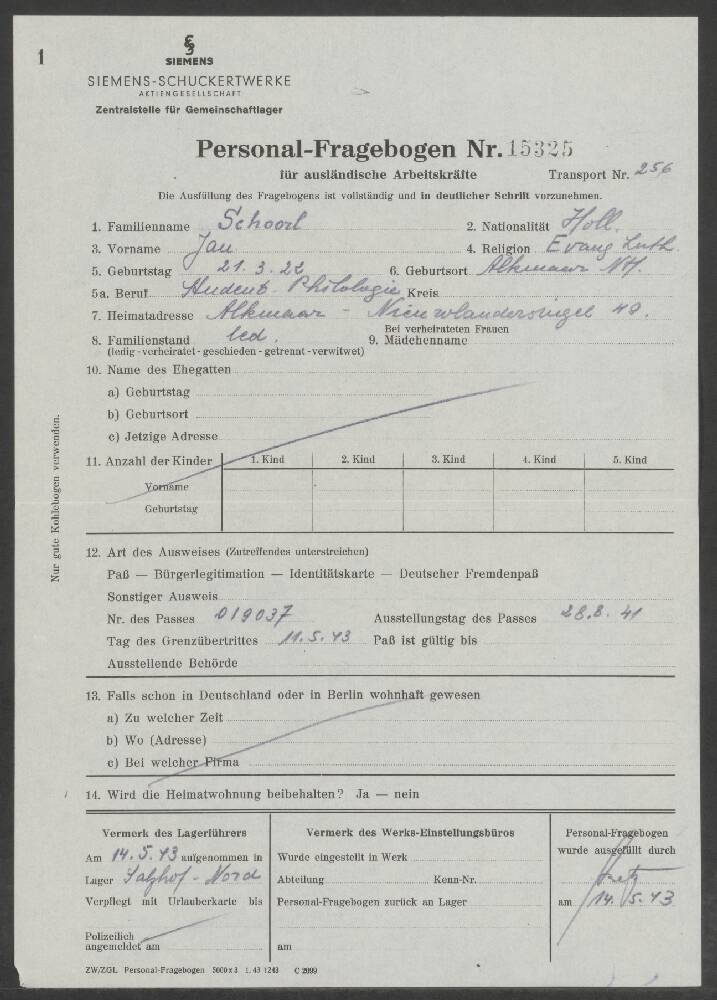 1
SIEMENS
SIEMENS-SCHUCKERTWERKE
AKTIENGESELLSCHAFT
Zentralstelle für Gemeinschaftlager
Personal-Fragebogen Nr. 15325
für ausländische Arbeitskräfte Transport Nr. 256
Die Ausfüllung des Fragebogens ist vollständig und in deutlicher Schrift vorzunehmen.
1. Familienname Schoorl 2. Nationalität Holl.
3. Vorname Jan 4. Religion Evang Luth.
5. Geburtstag 21.3.22 6. Geburtsort Alkmaar NH.
5a. Beruf Student Philologie Kreis
7. Heimatadresse Alkmaar - Nieuwlandersingel 48.
8. Familienstand led. Bei verheirateten Frauen
(ledig - verheiratet - geschieden - getrennt - verwitwet) 9. Mädchenname
10. Name des Ehegatten
a) Geburtstag
b) Geburtsort
c) Jetzige Adresse
11. Anzahl der Kinder 1. Kind 2. Kind 3. Kind 4. Kind 5. Kind
Vorname
Geburtstag
12. Art des Ausweises (Zutreffendes unterstreichen)
Paß — Bürgerlegitimation — Identitätskarte — Deutscher Fremdenpaß
Sonstiger Ausweis
Nr. des Passes 019037 Ausstellungstag des Passes 28.8.41
Tag des Grenzübertrittes 11.5.43 Paß ist gültig bis
Ausstellende Behörde
13. Falls schon in Deutschland oder in Berlin wohnhaft gewesen
a) Zu welcher Zeit
b) Wo (Adresse)
c) Bei welcher Firma
14. Wird die Heimatwohnung beibehalten? Ja — nein
Vermerk des Lagerführers
Am 14.5.43 aufgenommen in
Lager Salzhof - Nord
Verpflegt mit Urlauberkarte bis
Polizeilich
angemeldet am
Vermerk des Werks-Einstellungsbüros
Wurde eingestellt in Werk
Abteilung Kenn-Nr.
Personal-Fragebogen zurück an Lager
am
Personal-Fragebogen
wurde ausgefüllt durch
am 14.5.43
ZW/ZGL Personal-Fragebogen 5000x3 1.43 1243 C 2099
Nur gute Kohlebogen verwenden.